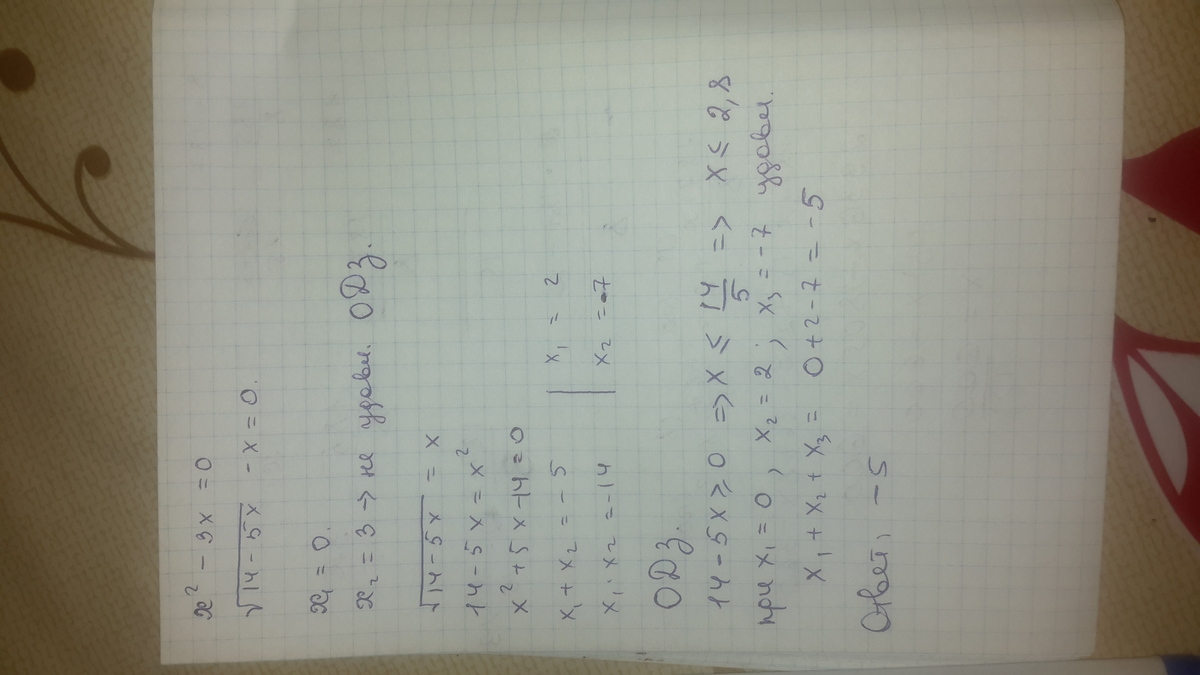 x² − 3x = 0
√(14 − 5x) − x = 0.
x₁ = 0.
x₂ = 3 → не удовл. ОДЗ.
√(14 − 5x) = x
14 − 5x = x²
x² + 5x − 14 = 0
x₁ + x₂ = − 5 | x₁ = 2
x₁ · x₂ = −14 | x₂ = −7
ОДЗ.
14 − 5x ≥ 0 => x ≤ 14/5 => x ≤ 2,8
при x₁ = 0, x₂ = 2; x₃ = −7 удовл.
x₁ + x₂ + x₃ = 0 + 2 − 7 = − 5
Ответ: −5